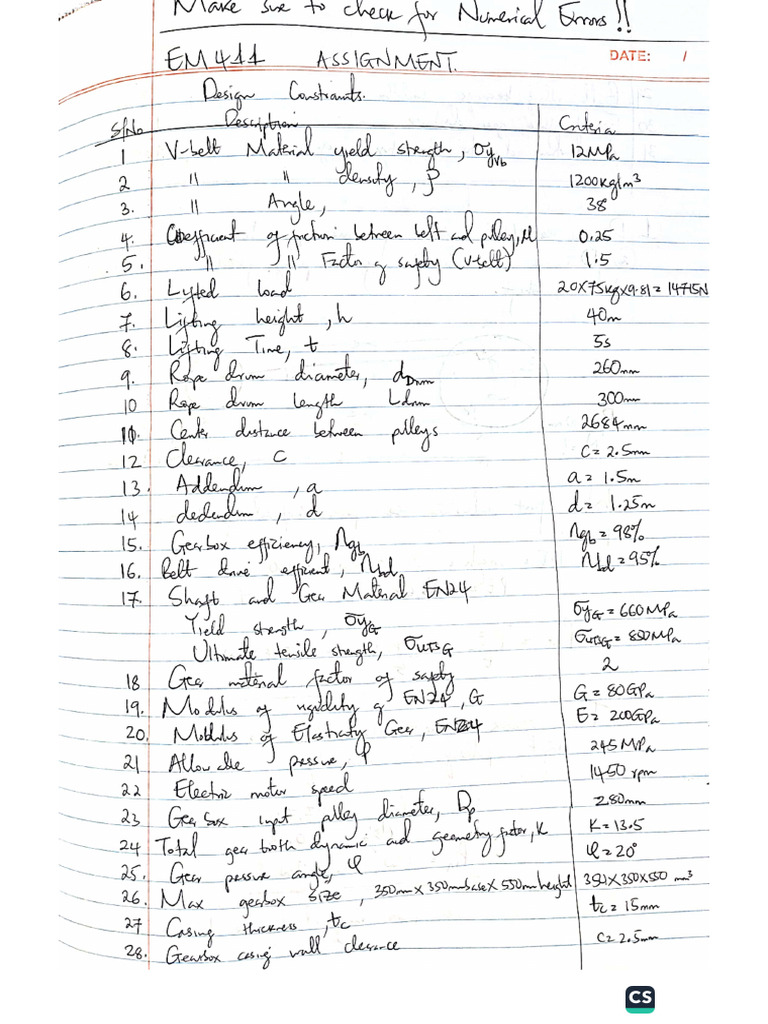 Make sure to check for Numerical Errors!!
EM 411 ASSIGNMENT.
DATE: /
Design Constraints.
S/No Description Criteria
1 V-belt Material yield strength, σy_vb 12MPa
2 " " density, ρ 1200kg/m³
3. " Angle, 38
4. Coefficient of friction between belt and pulley, μ 0.25
5. " " Factor of safety (V-belt) 1.5
6. Lifted load 20X75kgx9.81 = 14715N
7. Lifting height, h 40m
8. Lifting Time, t 5s
9. Rope drum diameter, d_Drum 260mm
10 Rope drum length L_drum 300mm
10. Center distance between pulleys 2684mm
12 Clearance, C C = 2.5mm
13. Addendum, a a = 1.5m
14 dedendum, d d = 1.25m
15. Gearbox efficiency, η_gb η_gb = 98%
16. Belt drive efficient, η_bd η_bd = 95%
17. Shaft and Gear Material EN24
Yield strength, σy_G σy_G = 660MPa
Ultimate tensile strength, σ_UTSG σ_UTSG = 850MPa
18 Gear material factor of safety 2
19. Modulus of rigidity of EN24, G G = 80GPa
20. Modulus of Elasticity Gear, EN24 E = 200GPa
21 pressure, 245 MPa
22 Electric motor speed 1450 rpm
23 Gear box input pulley diameter, Dp 280mm
24 Total gear tooth dynamic and geometry factor, K K = 13.5
25. Gear pressure angle, φ φ = 20°
26. Max gearbox size, 350mm X 350mm base X 550mm height 350X350X550 mm³
27 Casing thickness, tc tc = 15mm
28. Gearbox casing wall clearance c = 2.5mm
CS